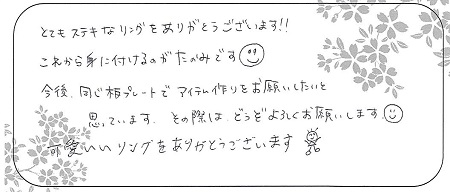 とてもステキなリングをありがとうございます!!
これから身に付けるのがたのみです
今後、同じ板プレートでアイテム作りをお願いしたいと
思っています。その際は、どうぞよろしくお願いします。
可愛いいリングをありがとうございます